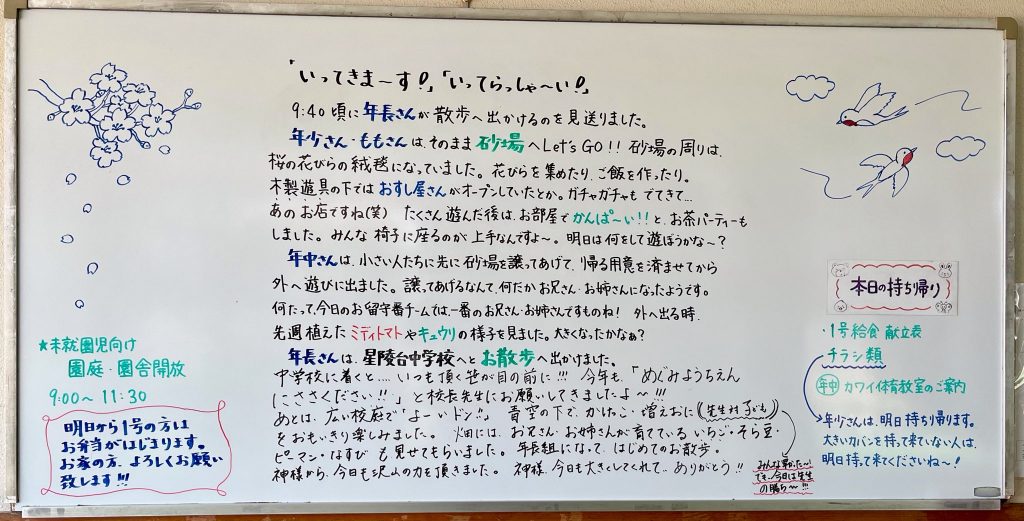 「いってきま〜す！」「いってらっしゃ〜い！」
9:40 頃に年長さんが散歩へ出かけるのを見送りました。
年少さん・ももさんは、そのまま 砂場へLet's GO!! 砂場の周りは、
桜の花びらの絨毯になっていました。花びらを集めたり、ご飯を作ったり。
木製遊具の下では おすし屋さんがオープンしていたとか。ガチャガチャも でてきて…
あの お店ですね(笑) たくさん遊んだ後は、お部屋で かんぱ〜い!! と、お茶パーティーも
しました。みんな 椅子に座るのが 上手なんですよ〜。明日は何をして遊ぼうかな〜?
年中さんは、小さい人たちに先に 砂場を譲ってあげて、帰る用意を済ませてから
外へ遊びに出ました。譲ってあげるなんて、何だか お兄さん・お姉さんになったようです。
何たって、今日のお留守番チームでは、一番のお兄さん・お姉さんですものね! 外へ出る時、
先週植えた ミディトマトやキュウリの様子を見ました。大きくなったかなぁ?
年長さんは、星陵台中学校へと お散歩へ出かけました。
中学校に着くと…. いつも頂く笹が目の前に!!! 今年も、「めぐみようちえん
にささください!!」と校長先生にお願いしてきましたよ〜!!!
あとは、広い校庭で「よーいドン!!」。青空の下で、かけっこ・増えおに(先生対子ども)
をおもいきり楽しみました。畑には、お兄さん・お姉さんが育てている いちご・そら豆・
ピーマン・なすび も見せてもらいました。年長組になって、はじめてのお散歩。
神様から、今日も沢山の力を頂きました。神様、今日も大きくしてくれて… ありがとう!!
みんな早かった〜!
でも、今日は先生
の勝ち〜!!!
★未就園児向け
園庭・園舎開放
9:00〜11:30
明日から1号の方は
お弁当がはじまります。
お家の方、よろしくお願い
致します!!!
本日の持ち帰り
・1号給食 献立表
チラシ類
年中 カワイ体育教室のご案内
年少さんは、明日 持ち帰ります。
大きいカバンを持って来ていない人は、
明日持って来てくださいね〜!